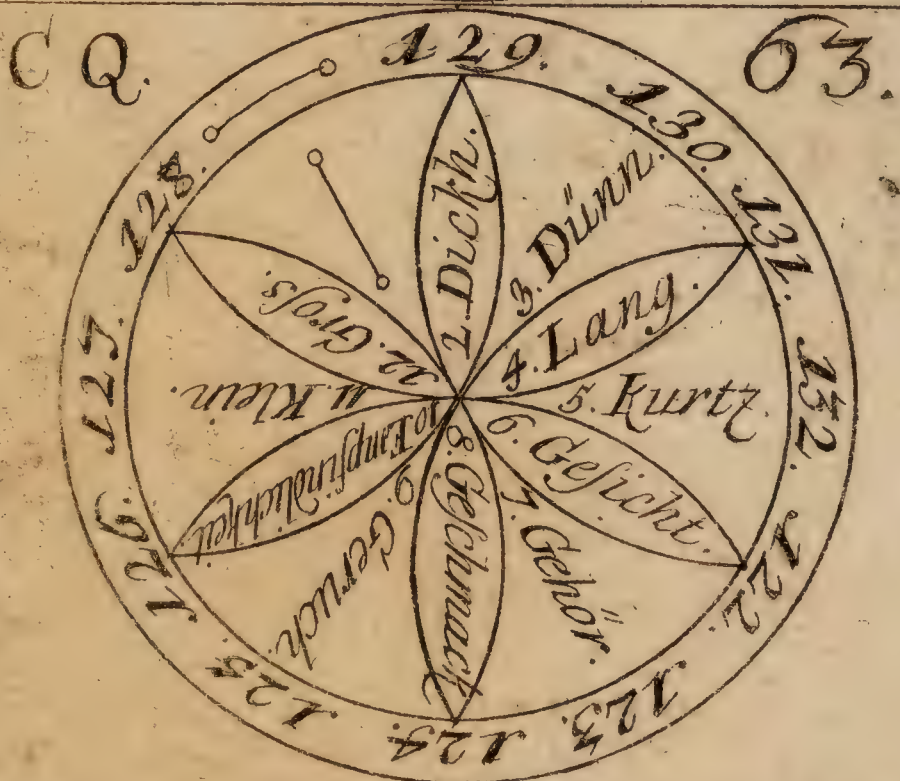 C Q.
63.
129.
130.
131.
132.
122.
123.
124.
125.
126.
127.
128.
2. Dickh.
3. Dünn.
4. Lang.
5. Kurtz.
6. Geſicht.
7. Gehör.
8. Geſchmack
9. Geruch.
10. Empfindlichkeit.
11. Klein.
12. Groſs.